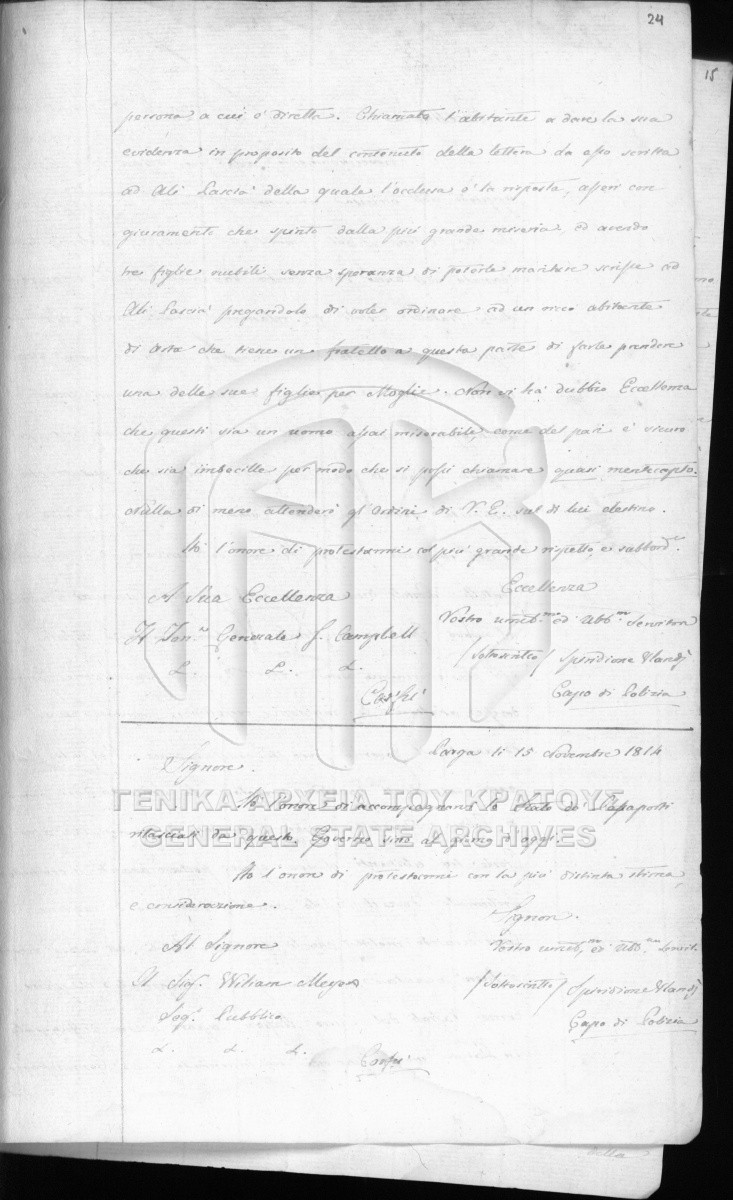 24
15
persona, a cui è diretta. Chiamato l'abitante a dare la sua
evidenza in proposito del contenuto della lettera da esso scritta
ad Alì Pascià della quale l'acclusa è la risposta, asserì con
giuramento che spinto dalla più grande miseria, ed avendo
tre figlie nubili senza speranza di poterle maritare scrisse ad
Alì Pascià pregandolo di voler ordinare ad un ricco abitante
di Arta che tiene un fratello a questa parte di farle prendere
una delle sue figlie per Moglie. Non vi hà dubbio Eccellenza
che questi sia un uomo assai miserabile, come del pari è sicuro
che sia imbecille per modo che si possi chiamare quasi mentecapto.
Nulla di meno attenderò gl'Ordini di V. E. sul di lui destino.
Hò l'onore di protestarmi col più grande rispetto, e subbord.e
Eccellenza
A Sua Eccellenza
Vostro umil.mo ed Ubb.mo Servitore
Il Ten.e Generale J. Campbell
/Sottoscritto/ Spiridione
&. &. &.
Capo di Polizia
Corfù
Parga li 15 Novembre 1814
Signore.
Hò l'onore di accompagnarvi lo Stato de' Passaporti
rilasciati da questo Governo sino al giorno d'oggi.
Hò l'onore di protestarmi con la più distinta stima,
e considerazione.
Signore.
Al Signore
Vostro umil.mo ed Ubb.mo Servit.
Il Sig. William Meyer
/Sottoscritto/ Spiridione
Seg.o Pubblico
Capo di Polizia
&. &. &.
Corfù
ΓΕΝΙΚΑ ΑΡΧΕΙΑ ΤΟΥ ΚΡΑΤΟΥΣ
GENERAL STATE ARCHIVES